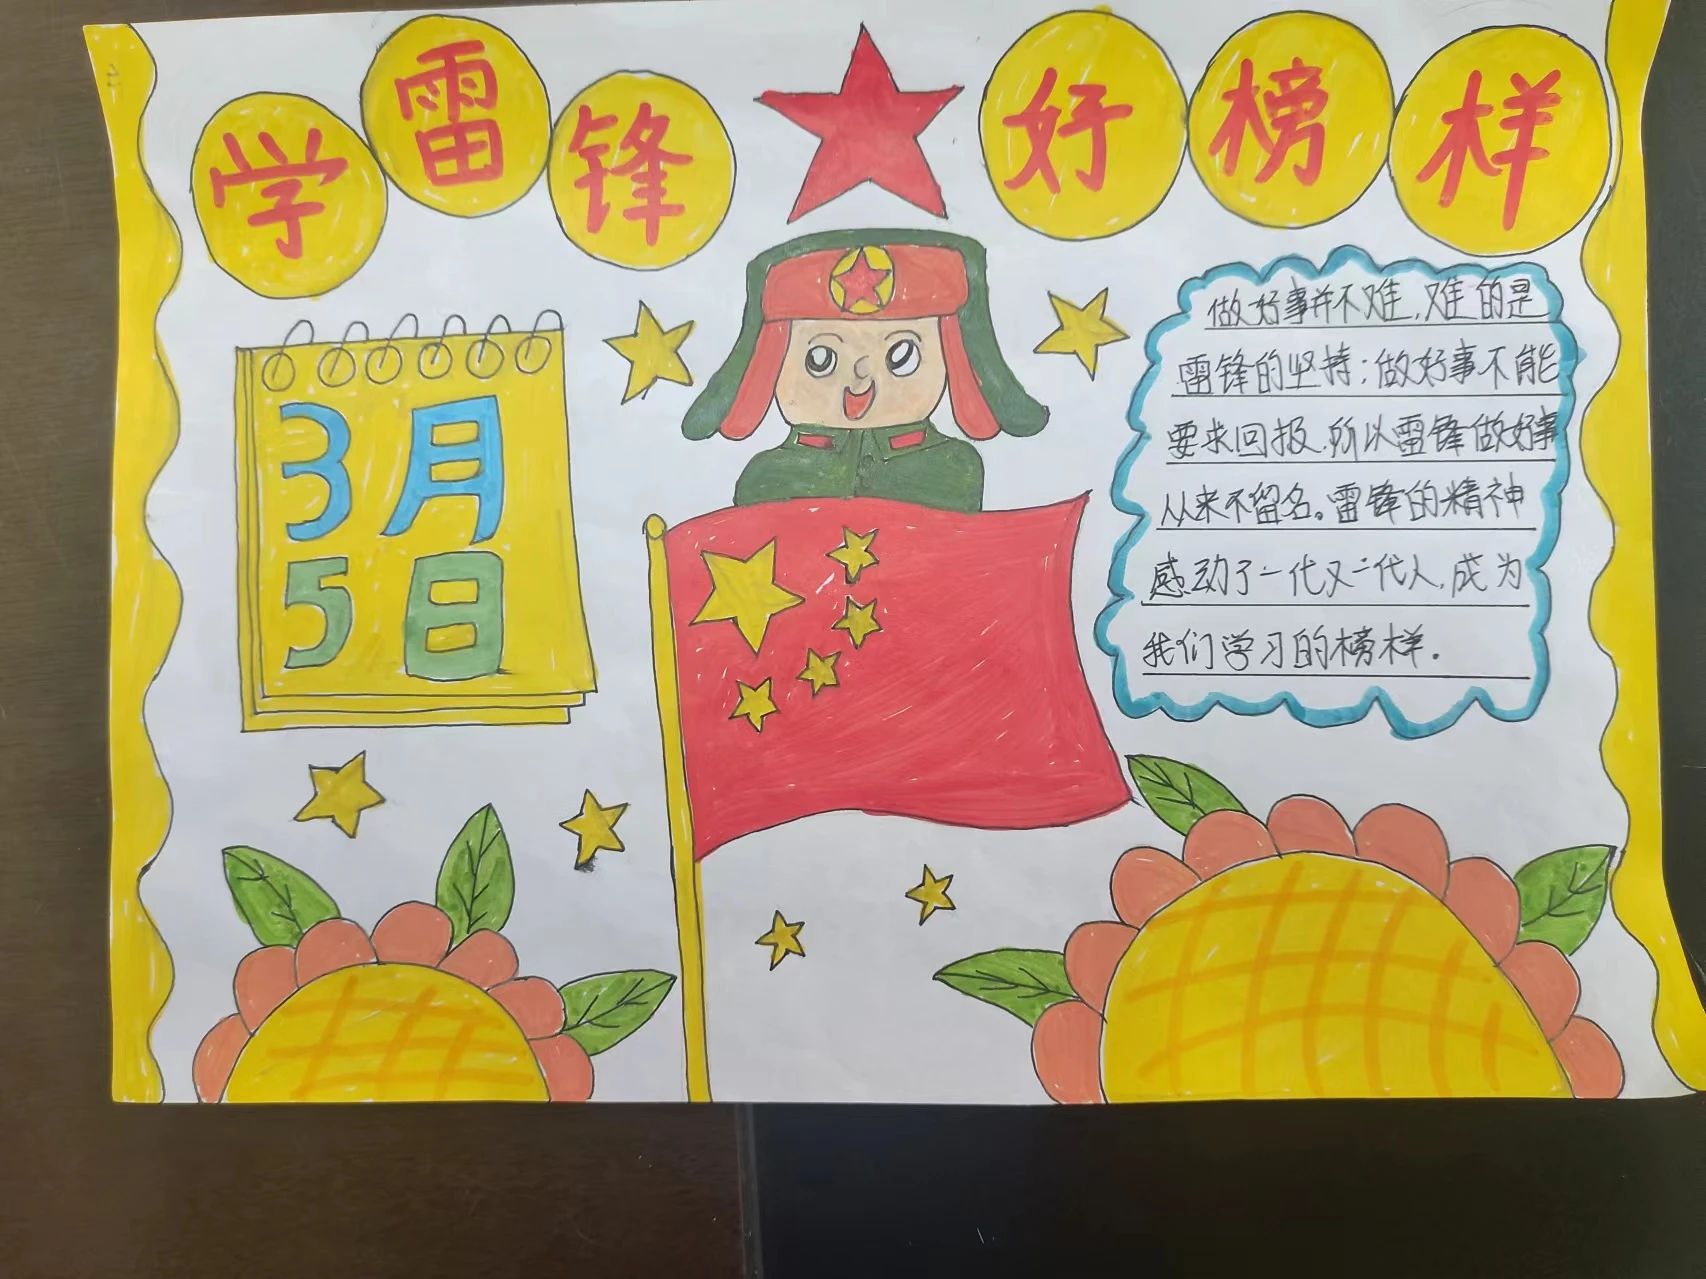 学雷锋 好榜样
3月
5日
做好事并不难,难的是
雷锋的坚持;做好事不能
要求回报.所以雷锋做好事
从来不留名。雷锋的精神
感动了一代又一代人.成为
我们学习的榜样.